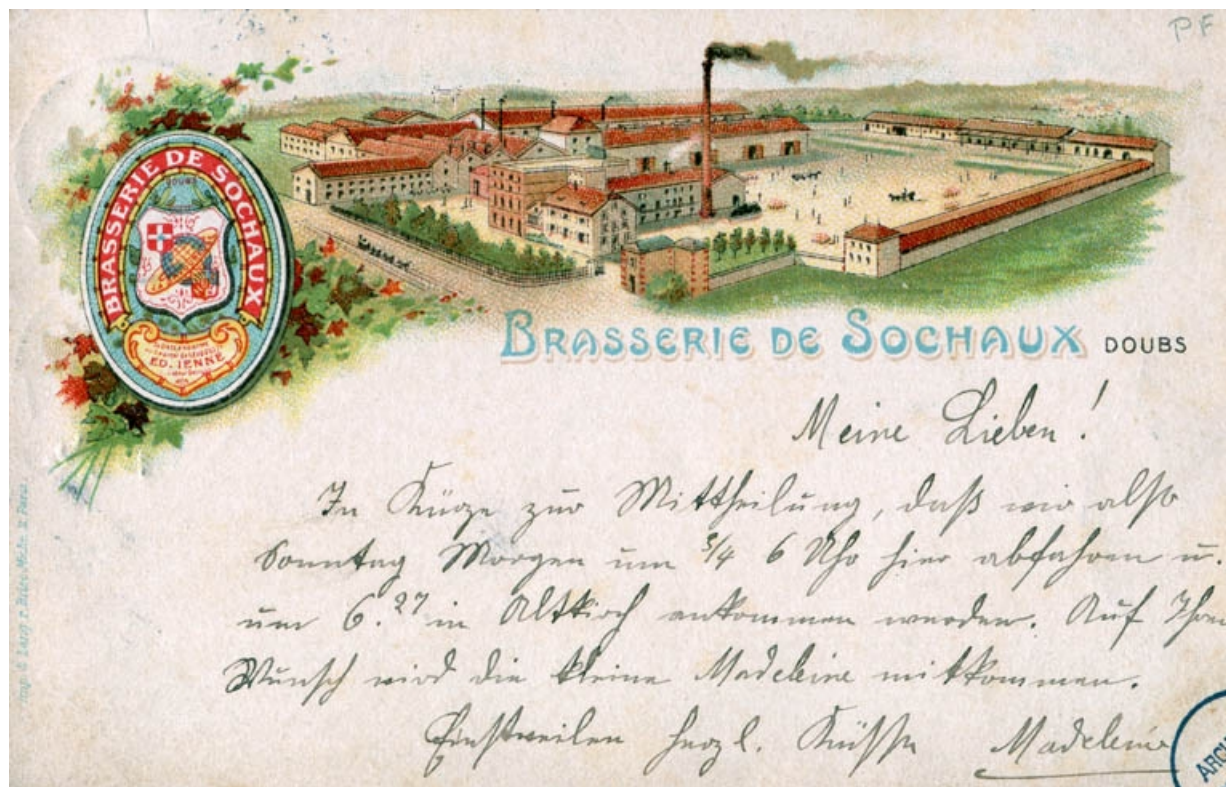 PF
BRASSERIE DE SOCHAUX
DOUBS
ED. IENNÉ
BRASSERIE DE SOCHAUX DOUBS
Meine Lieben!
In Kürze zur Mittheilung, daß wir also
Sonntag Morgen um 3/4 6 Uhr hier abfahren u.
um 6.27 in Altkirch ankommen werden. Auf Ihren
Wunsch wird die kleine Madeleine mitkommen.
Einstweilen herzl. Küsse Madeleine
ARCH